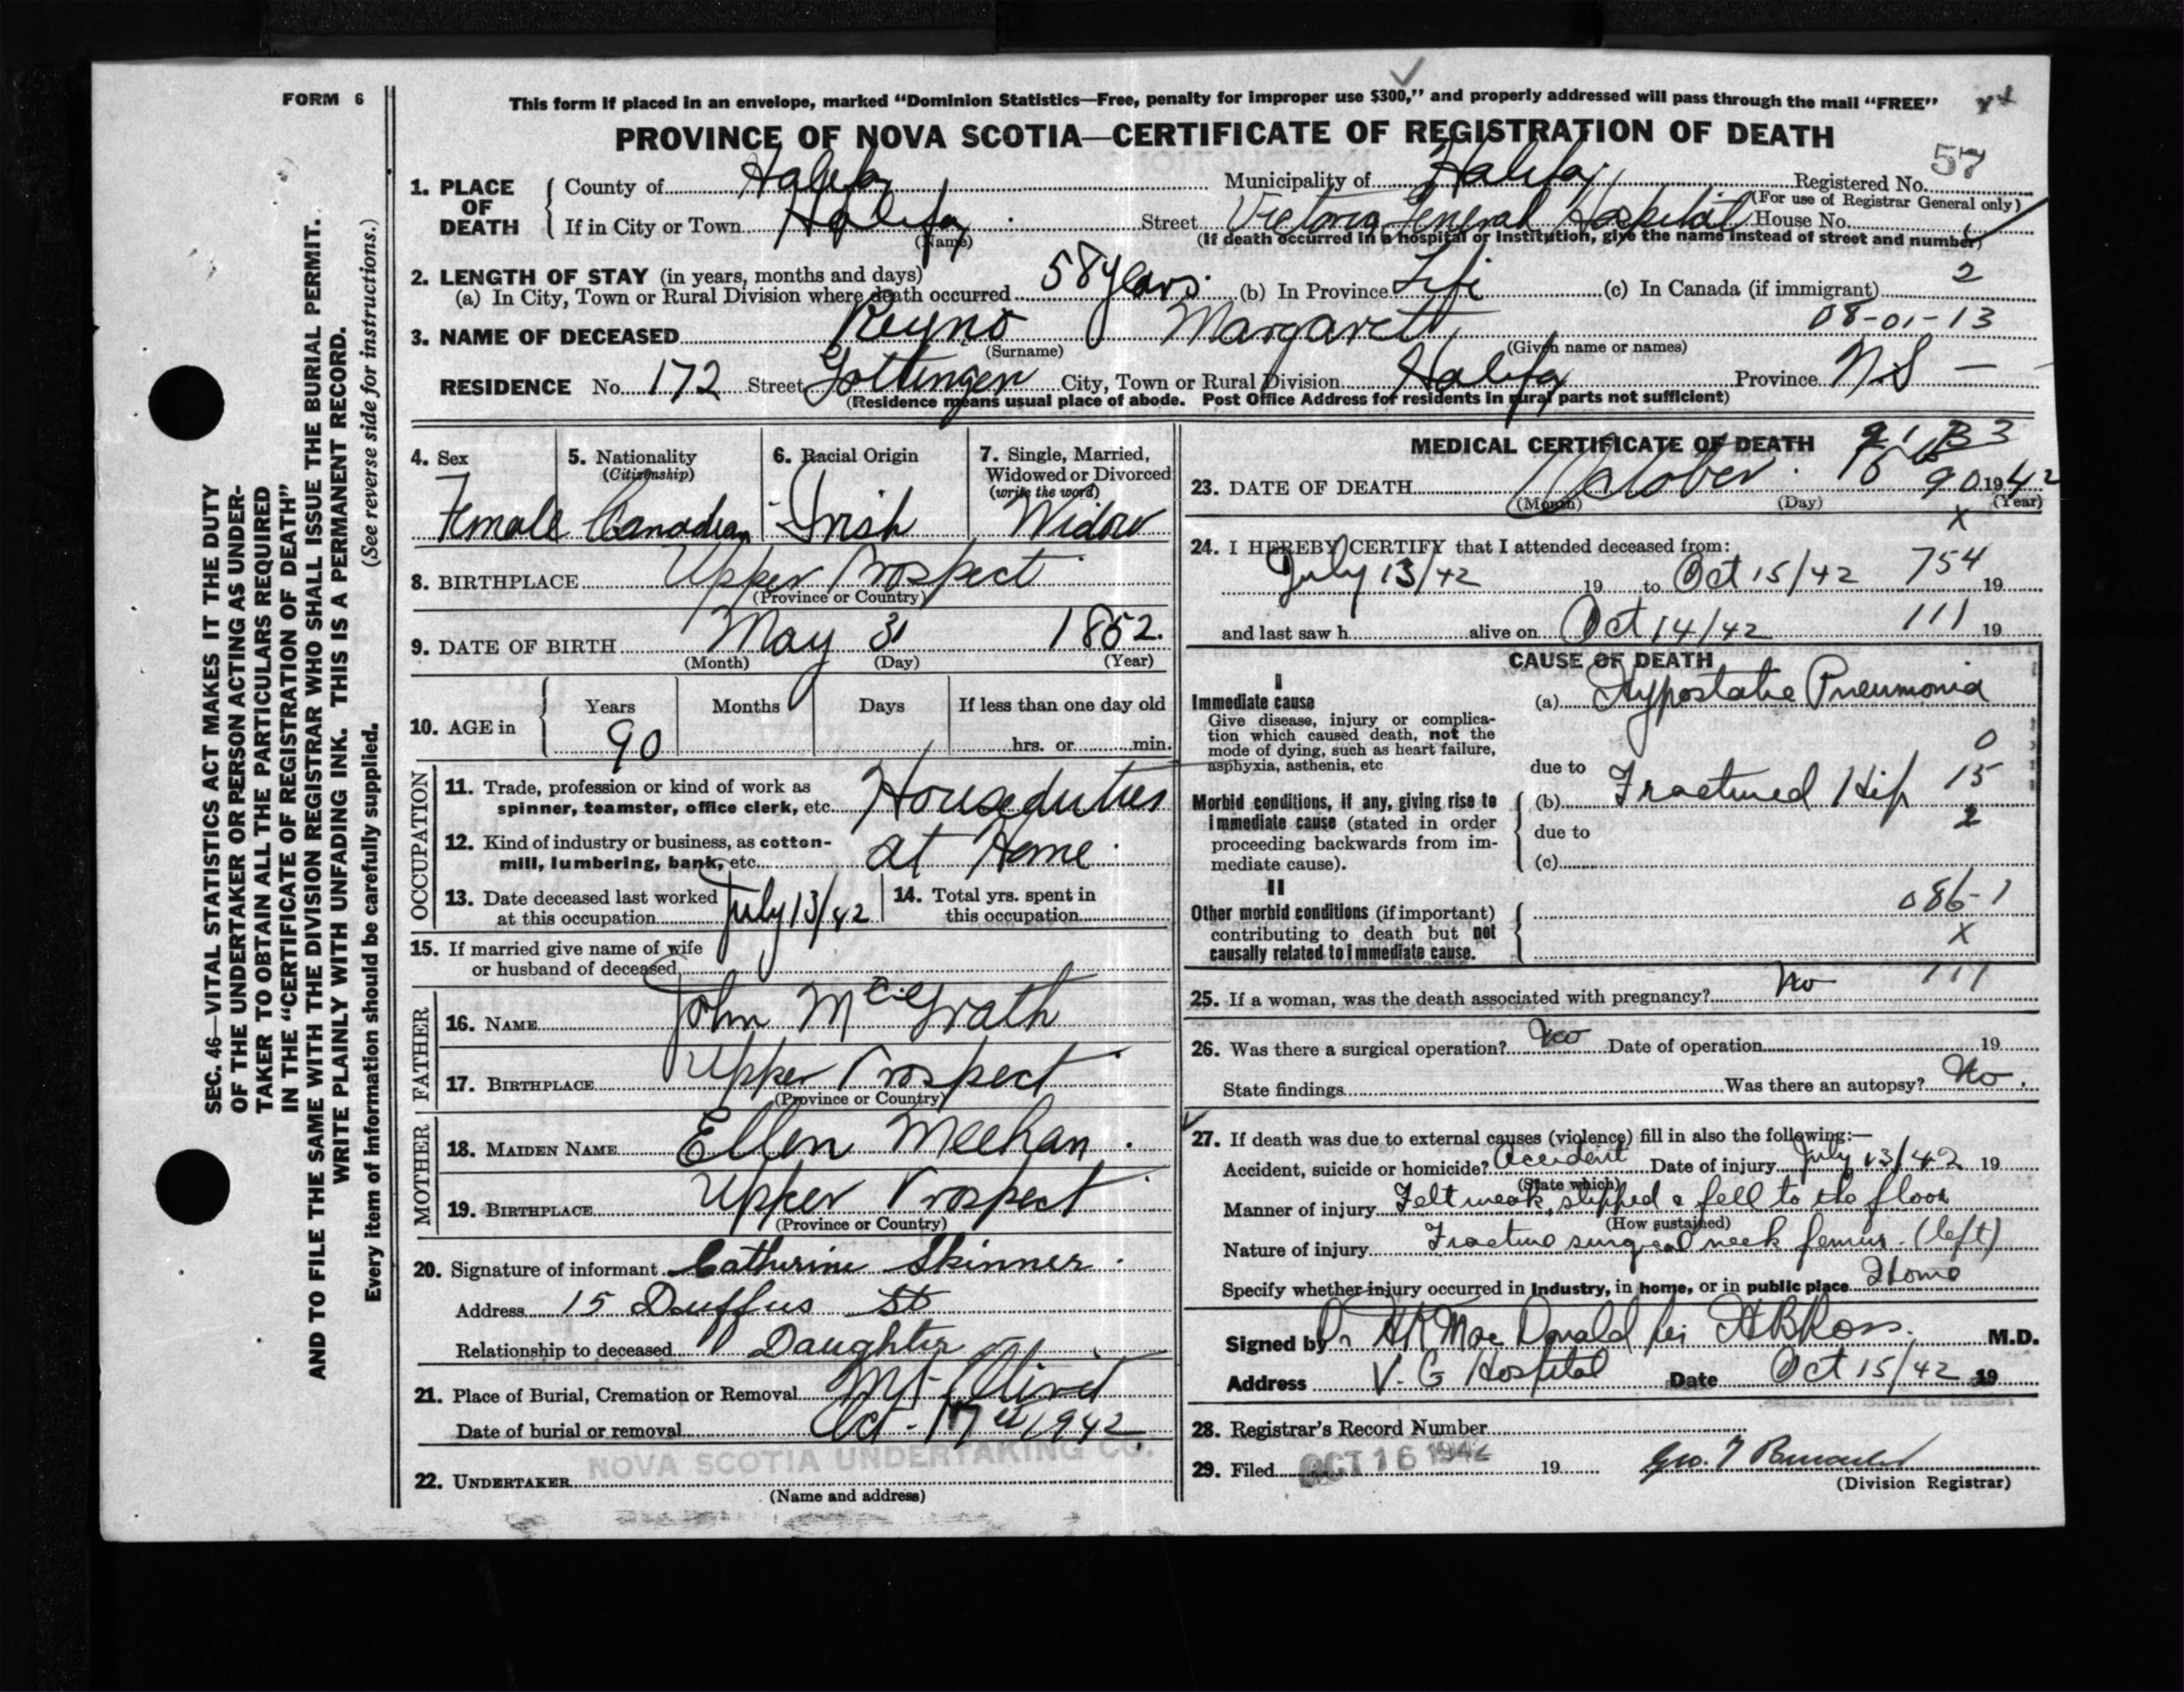 FORM 6
This form if placed in an envelope, marked “Dominion Statistics—Free, penalty for improper use $300,” and properly addressed will pass through the mail “FREE”
PROVINCE OF NOVA SCOTIA—CERTIFICATE OF REGISTRATION OF DEATH
57
1. PLACE OF DEATH
County of Halifax Municipality of Halifax Registered No.
(For use of Registrar General only)
If in City or Town Halifax Street Victoria General Hospital House No.
(Name) (If death occurred in a hospital or institution, give the name instead of street and number)
2. LENGTH OF STAY (in years, months and days)
(a) In City, Town or Rural Division where death occurred 58 years. (b) In Province Life (c) In Canada (if immigrant) 2
08-01-13
3. NAME OF DECEASED Reyno Margarett
(Surname) (Given name or names)
RESIDENCE No. 172 Street Gottingen City, Town or Rural Division Halifax Province N.S —
(Residence means usual place of abode. Post Office Address for residents in rural parts not sufficient)
4. Sex 5. Nationality 6. Racial Origin 7. Single, Married,
(Citizenship) Widowed or Divorced
(write the word)
Female Canadian Irish Widow
8. BIRTHPLACE Upper Prospect
(Province or Country)
9. DATE OF BIRTH May 31 1852.
(Month) (Day) (Year)
10. AGE in Years Months Days If less than one day old
90 hrs. or min.
OCCUPATION
11. Trade, profession or kind of work as
spinner, teamster, office clerk, etc. House duties
12. Kind of industry or business, as cotton-
mill, lumbering, bank, etc. at Home
13. Date deceased last worked
at this occupation July 13/42
14. Total yrs. spent in
this occupation
15. If married give name of wife
or husband of deceased
FATHER
16. NAME John McGrath
17. BIRTHPLACE Upper Prospect
(Province or Country)
MOTHER
18. MAIDEN NAME Ellen Meehan
19. BIRTHPLACE Upper Prospect
(Province or Country)
20. Signature of informant Catherine Skinner
Address 15 Duffus St
Relationship to deceased Daughter
21. Place of Burial, Cremation or Removal Mt. Olivet
Date of burial or removal Oct. 17th 1942
NOVA SCOTIA UNDERTAKING CO.
22. UNDERTAKER
(Name and address)
MEDICAL CERTIFICATE OF DEATH
23. DATE OF DEATH October 15 90 1942
(Month) (Day) (Year)
X
24. I HEREBY CERTIFY that I attended deceased from:
July 13/42 19 to Oct 15/42 754 19
and last saw h alive on Oct 14/42 111 19
CAUSE OF DEATH
I
Immediate cause
Give disease, injury or complica-
tion which caused death, not the
mode of dying, such as heart failure,
asphyxia, asthenia, etc
(a) Hypostatic Pneumonia
0
due to
Morbid conditions, if any, giving rise to
immediate cause (stated in order
proceeding backwards from im-
mediate cause).
(b) Fractured Hip 15
2
due to
(c)
II
Other morbid conditions (if important)
contributing to death but not
causally related to immediate cause.
086-1
X
111
25. If a woman, was the death associated with pregnancy? No
26. Was there a surgical operation? No Date of operation 19
State findings Was there an autopsy? No.
27. If death was due to external causes (violence) fill in also the following:—
Accident, suicide or homicide? Accident Date of injury July 13/42 19
(State which)
Manner of injury Felt weak, slipped & fell to the floor
(How sustained)
Nature of injury Fracture surgical neck femur. (left)
Specify whether injury occurred in industry, in home, or in public place Home
Signed by Dr HK MacDonald per ABRoss. M.D.
Address V. G Hospital Date Oct 15/42 19
28. Registrar’s Record Number
29. Filed OCT 16 1942 19
(Division Registrar)
SEC. 46—VITAL STATISTICS ACT MAKES IT THE DUTY
OF THE UNDERTAKER OR PERSON ACTING AS UNDER-
TAKER TO OBTAIN ALL THE PARTICULARS REQUIRED
IN THE “CERTIFICATE OF REGISTRATION OF DEATH”
AND TO FILE THE SAME WITH THE DIVISION REGISTRAR WHO SHALL ISSUE THE BURIAL PERMIT.
WRITE PLAINLY WITH UNFADING INK. THIS IS A PERMANENT RECORD.
Every item of information should be carefully supplied. (See reverse side for instructions.)